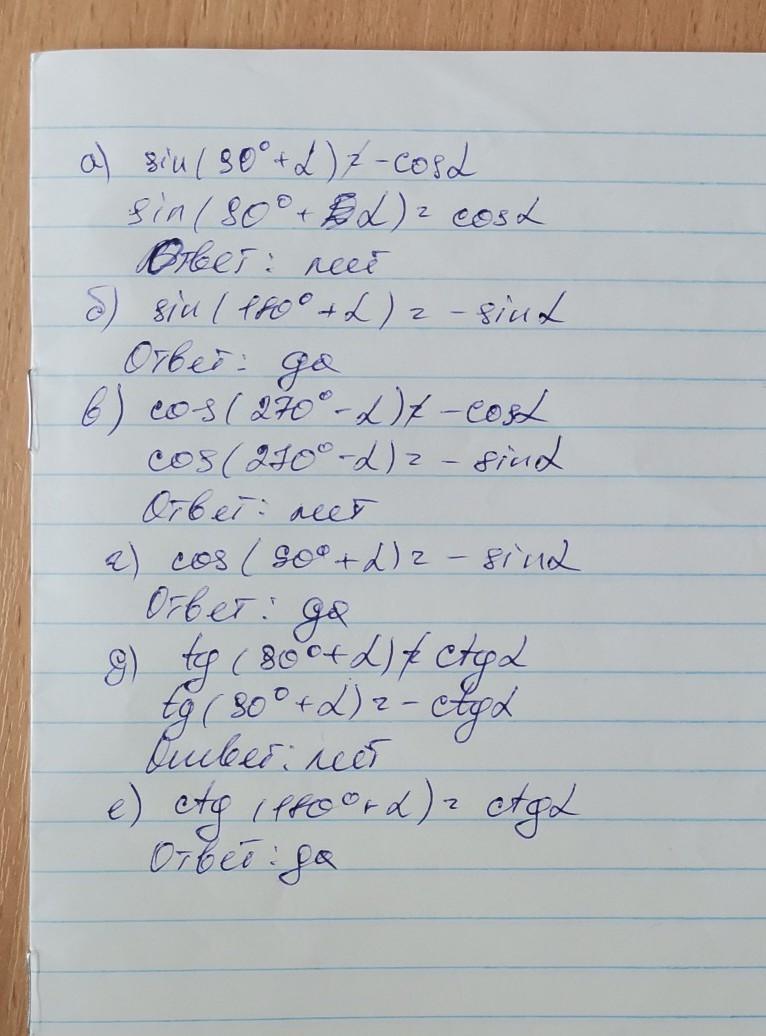 а) sin(90°+α)≠-cosα
sin(90°+α)=cosα
Ответ: нет
б) sin(180°+α)=-sinα
Ответ: да
в) cos(270°-α)≠-cosα
cos(270°-α)=-sinα
Ответ: нет
г) cos(90°+α)=-sinα
Ответ: да
д) tg(90°+α)≠ctgα
tg(90°+α)=-ctgα
Ответ: нет
е) ctg(180°+α)=ctgα
Ответ: да